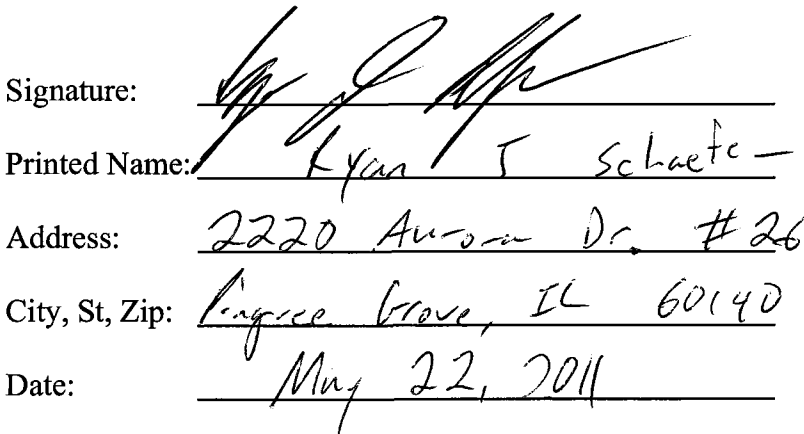 Signature:
Printed Name: Ryan J Schaefer
Address: 2220 Aurora Dr. #26
City, St, Zip: Pingree Grove, IL 60140
Date: May 22, 2011